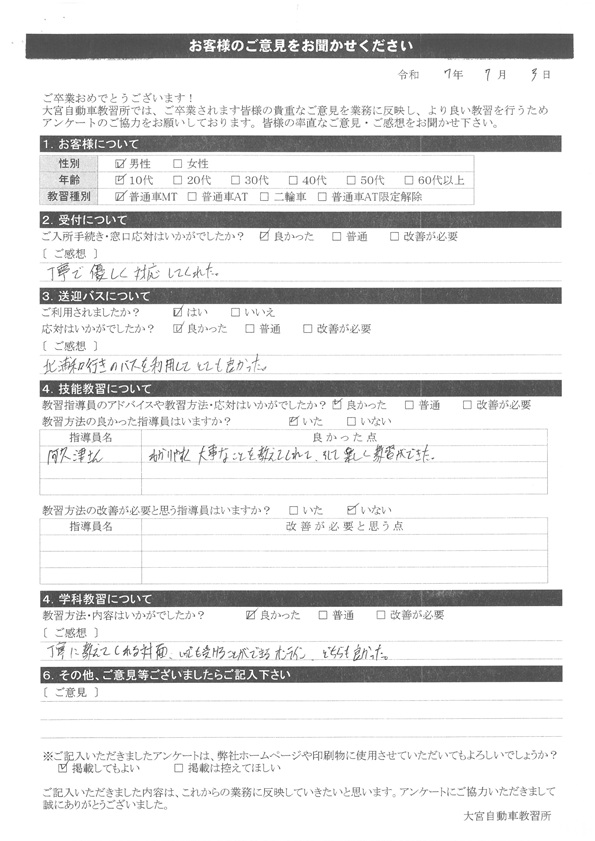 お客様のご意見をお聞かせください
令和 7年 7月 3日
ご卒業おめでとうございます！
大宮自動車教習所では、ご卒業されます皆様の貴重なご意見を業務に反映し、より良い教習を行うため
アンケートのご協力をお願いしております。皆様の率直なご意見・ご感想をお聞かせ下さい。
1. お客様について
性別 ☑男性 □女性
年齢 ☑10代 □20代 □30代 □40代 □50代 □60代以上
教習種別 ☑普通車MT □普通車AT □二輪車 □普通車AT限定解除
2. 受付について
ご入所手続き・窓口応対はいかがでしたか？ ☑良かった □普通 □改善が必要
［ご感想］
丁寧で優しく対応してくれた。
3. 送迎バスについて
ご利用されましたか？ ☑はい □いいえ
応対はいかがでしたか？ ☑良かった □普通 □改善が必要
［ご感想］
北浦和行きのバスを利用してとても良かった。
4. 技能教習について
教習指導員のアドバイスや教習方法・応対はいかがでしたか？ ☑良かった □普通 □改善が必要
教習方法の良かった指導員はいますか？ ☑いた □いない
指導員名 良かった点
阿久津さん わかりやすく大事なことを教えてくれて、そして楽しく教習ができた。
教習方法の改善が必要と思う指導員はいますか？ □いた ☑いない
指導員名 改善が必要と思う点
4. 学科教習について
教習方法・内容はいかがでしたか？ ☑良かった □普通 □改善が必要
［ご感想］
丁寧に教えてくれる対面、いつでも受けることができるオンライン、どちらも良かった。
6. その他、ご意見等ございましたらご記入下さい
［ご意見］
※ご記入いただきましたアンケートは、弊社ホームページや印刷物に使用させていただいてもよろしいでしょうか？
☑掲載してもよい □掲載は控えてほしい
ご記入いただきました内容は、これからの業務に反映していきたいと思います。アンケートにご協力いただきまして
誠にありがとうございました。
大宮自動車教習所